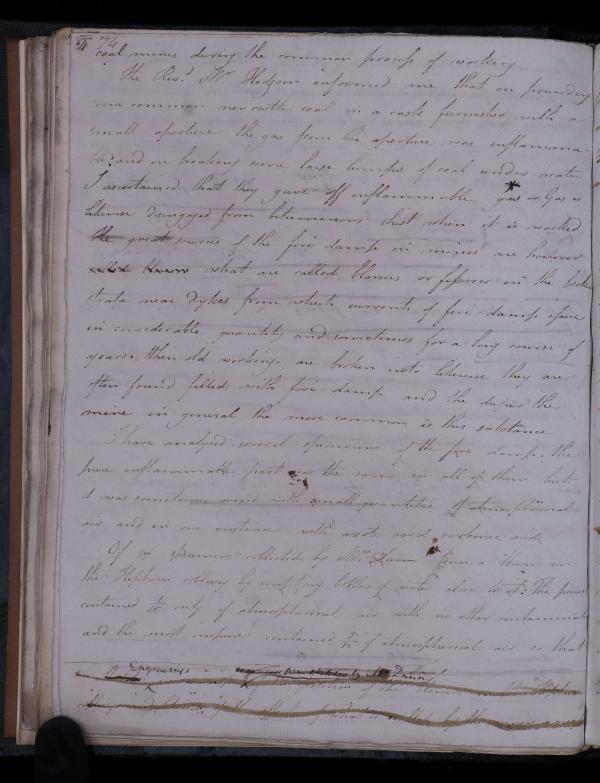 74
coal mines during the common process of working
The Revd. Mr Hodgson informed me that on pounding
some common newcastle coal in a cask furnished with a
small aperture the gas from the aperture was inflamma-
ble; and on breaking some large lumps of coal under water
I ascertained that they gave off inflammable gas Gas is
likewise disengaged from bituminous shist when it is worked
the great sources of the fire damp in mines are however
what are called blowers or fissures in the broken
strata near dykes from which currents of fire damp issue
in considerable quantity and sometimes for a long course of
years. When old workings are broken into likewise they are
often found filled with fire damp and the deeper the
mine in general the more common is this substance
I have analysed several specimens of the fire damp. the
pure inflammable part was the same in all of them but
it was sometimes mixed with small quantities of atmospherical
air and in one instance with azote and carbonic acid
Of six specimens collected by Mr Dunn from a blower in
the Hepburn colliery by emptying bottles of water close to it: The purest
contained 1/15 only of atmospherical air with no other contaminate
and the most impure contained 5/12 of atmospherical air so that
Engravings Dunn
of the
of the effects produced by the